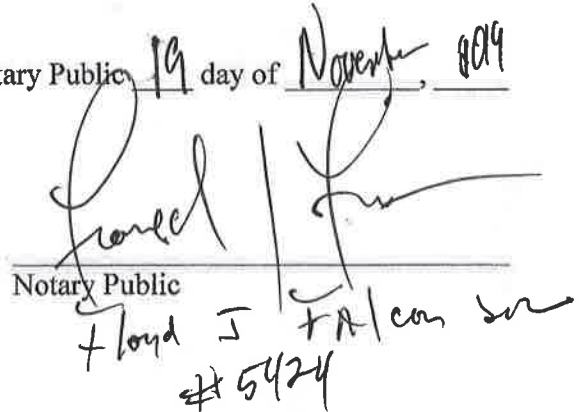 tary Public 19 day of November, 2019
Notary Public
Floyd J Falcon
#5424